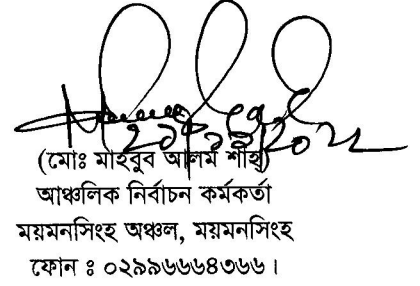 (মোঃ মাহবুব আলম শাহ)
আঞ্চলিক নির্বাচন কর্মকর্তা
ময়মনসিংহ অঞ্চল, ময়মনসিংহ
ফোন ঃ ০২৯৯৬৬৬৪৩৬৬।